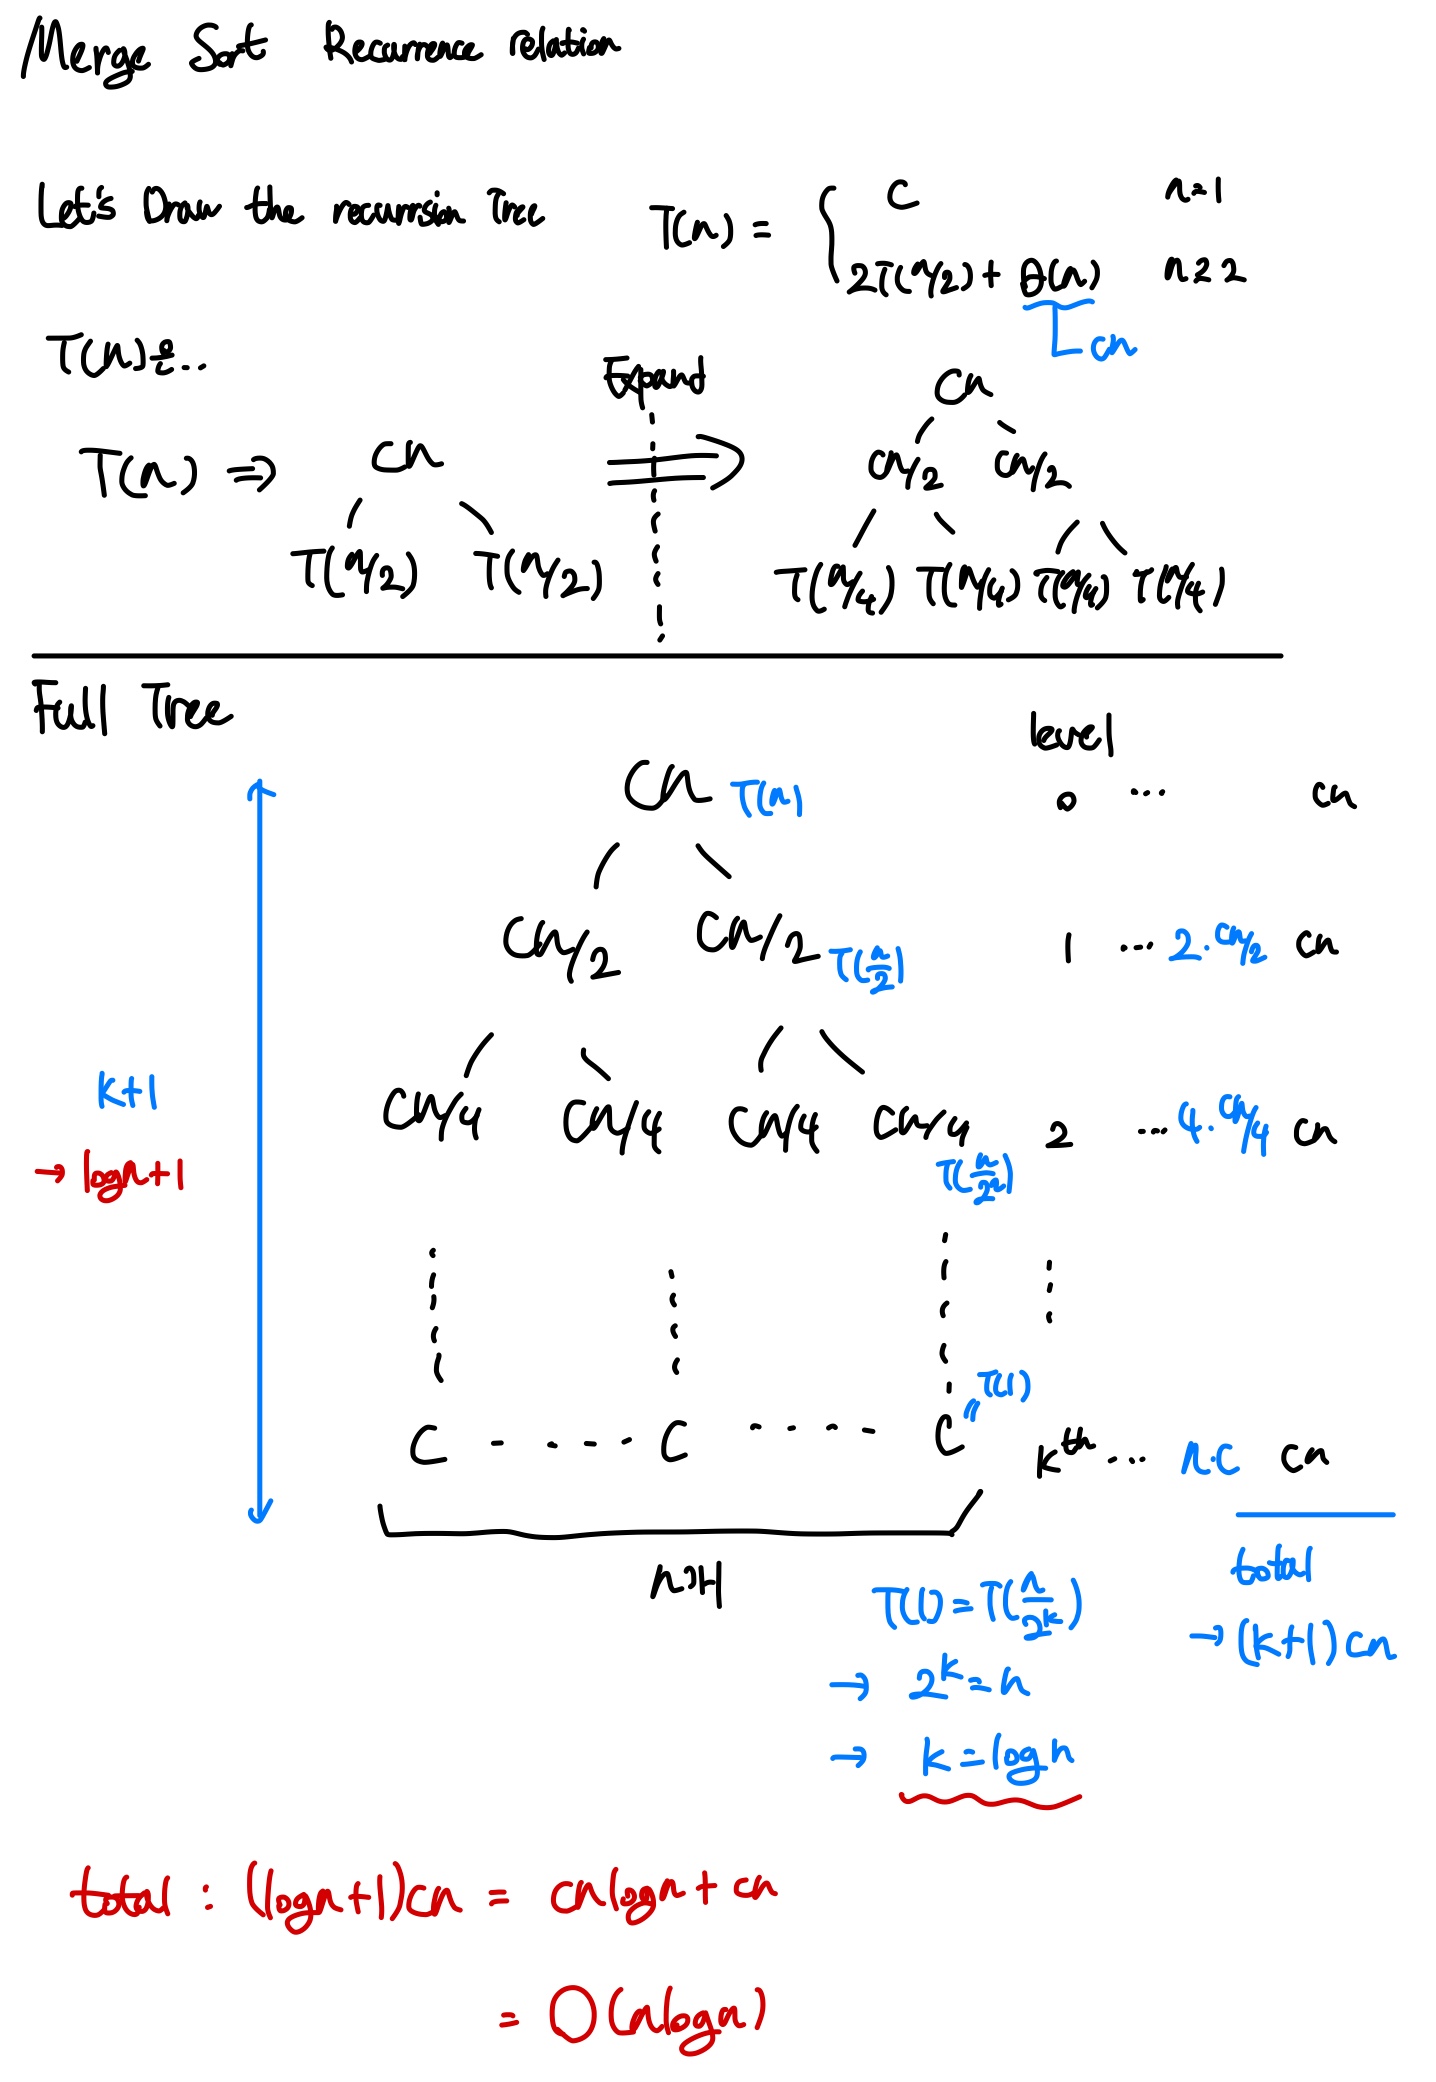 Merge Sort Recurrence relation
Let's Draw the recurrsion Tree
T(n) = { C n=1
2T(n/2) + θ(n) n≥2
cn
T(n)은..
Expand
T(n) ⇒ cn
T(n/2) T(n/2)
Cn
cn/2 cn/2
T(n/4) T(n/4) T(n/4) T(n/4)
Full Tree
level
Cn T(n) 0 ... cn
Cn/2 Cn/2 T(n/2) 1 ... 2·cn/2 cn
k+1
→ logn+1
Cn/4 Cn/4 Cn/4 Cn/4 2 ... 4·cn/4 cn
T(n/2²)
T(1)
C - - - - C - - - - C kth ... n·c cn
n개
total
→ (k+1)cn
T(1) = T(n/2^k)
→ 2^k = n
→ k = logn
total : (logn+1)cn = cnlogn + cn
= O(nlogn)